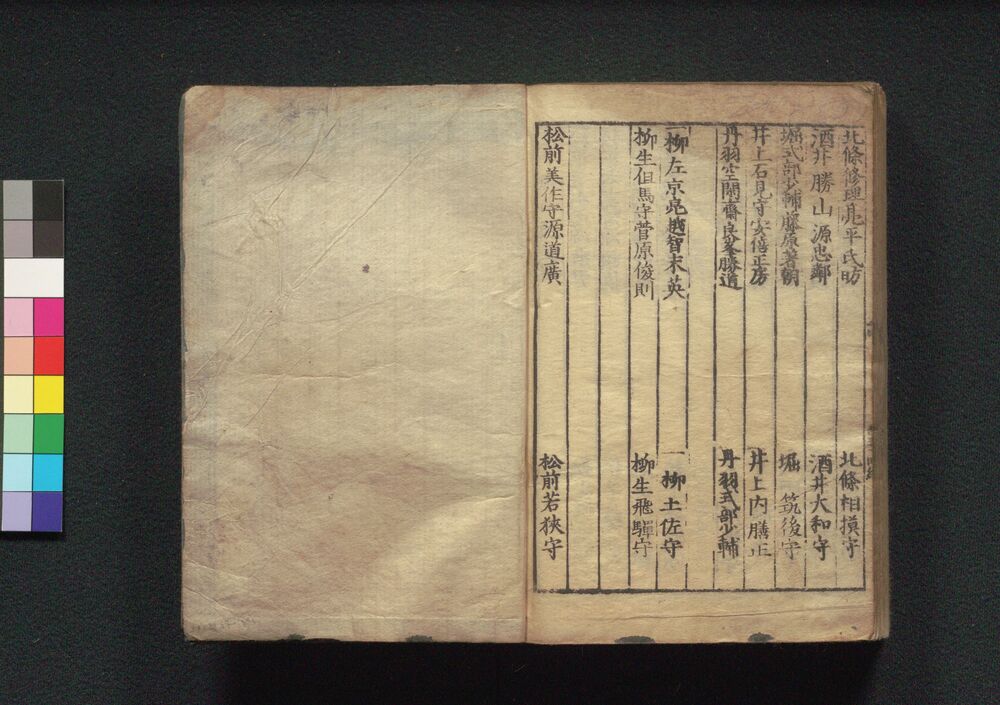 北條修理亮平氏昉 北條相摸守
酒井勝山源忠鄰 酒井大和守
堀式部少輔藤原著朝 堀筑後守
井上石見守安倍正房 井上内膳正
丹羽空閑齋良峯勝道 丹羽式部少輔
一柳左京亮越智末英 一柳土佐守
柳生但馬守菅原俊則 柳生飛驒守
松前美作守源道廣 松前若狹守